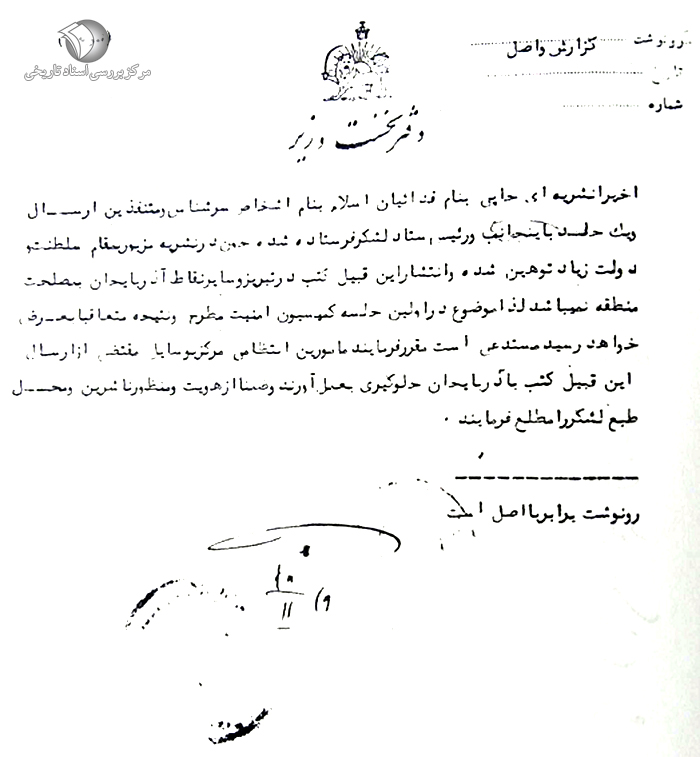 مرکز بررسی اسناد تاریخی
رونوشت گزارش واصل
تاریخ
شماره
دفتر نخست وزیر
اخیرا نشریه ای چاپی بنام فدائیان اسلام بنام اشخاص سرشناس ومتنفذین ارســـال
ویک جلسد باینجانب ورئیس ستاد لشگر فرستاده شده چون در نشریه مزبور بمقام سلطنت و
دولت زیاد توهین شده وانتشار این قبیل کتب در تبریز وسایر نقاط آذربایجان بمصلحت
منطقه نمیباشد لذا موضوع در اولین جلسه کمیسیون امنیت مطرح ونتیجه متعاقبا بعــرض
خواهد رسید مستدعی است مقرر فرمایند مامورین انتظامی مرکز بوسایل مقتضی از ارسال
این قبیل کتب بآذربایجان جلوگیری بعمل آورند وضمنا از هویت ومنظور ناشرین ومحــل
طبع لشکر را مطلع فرمایند .
رونوشت برابر با اصل است